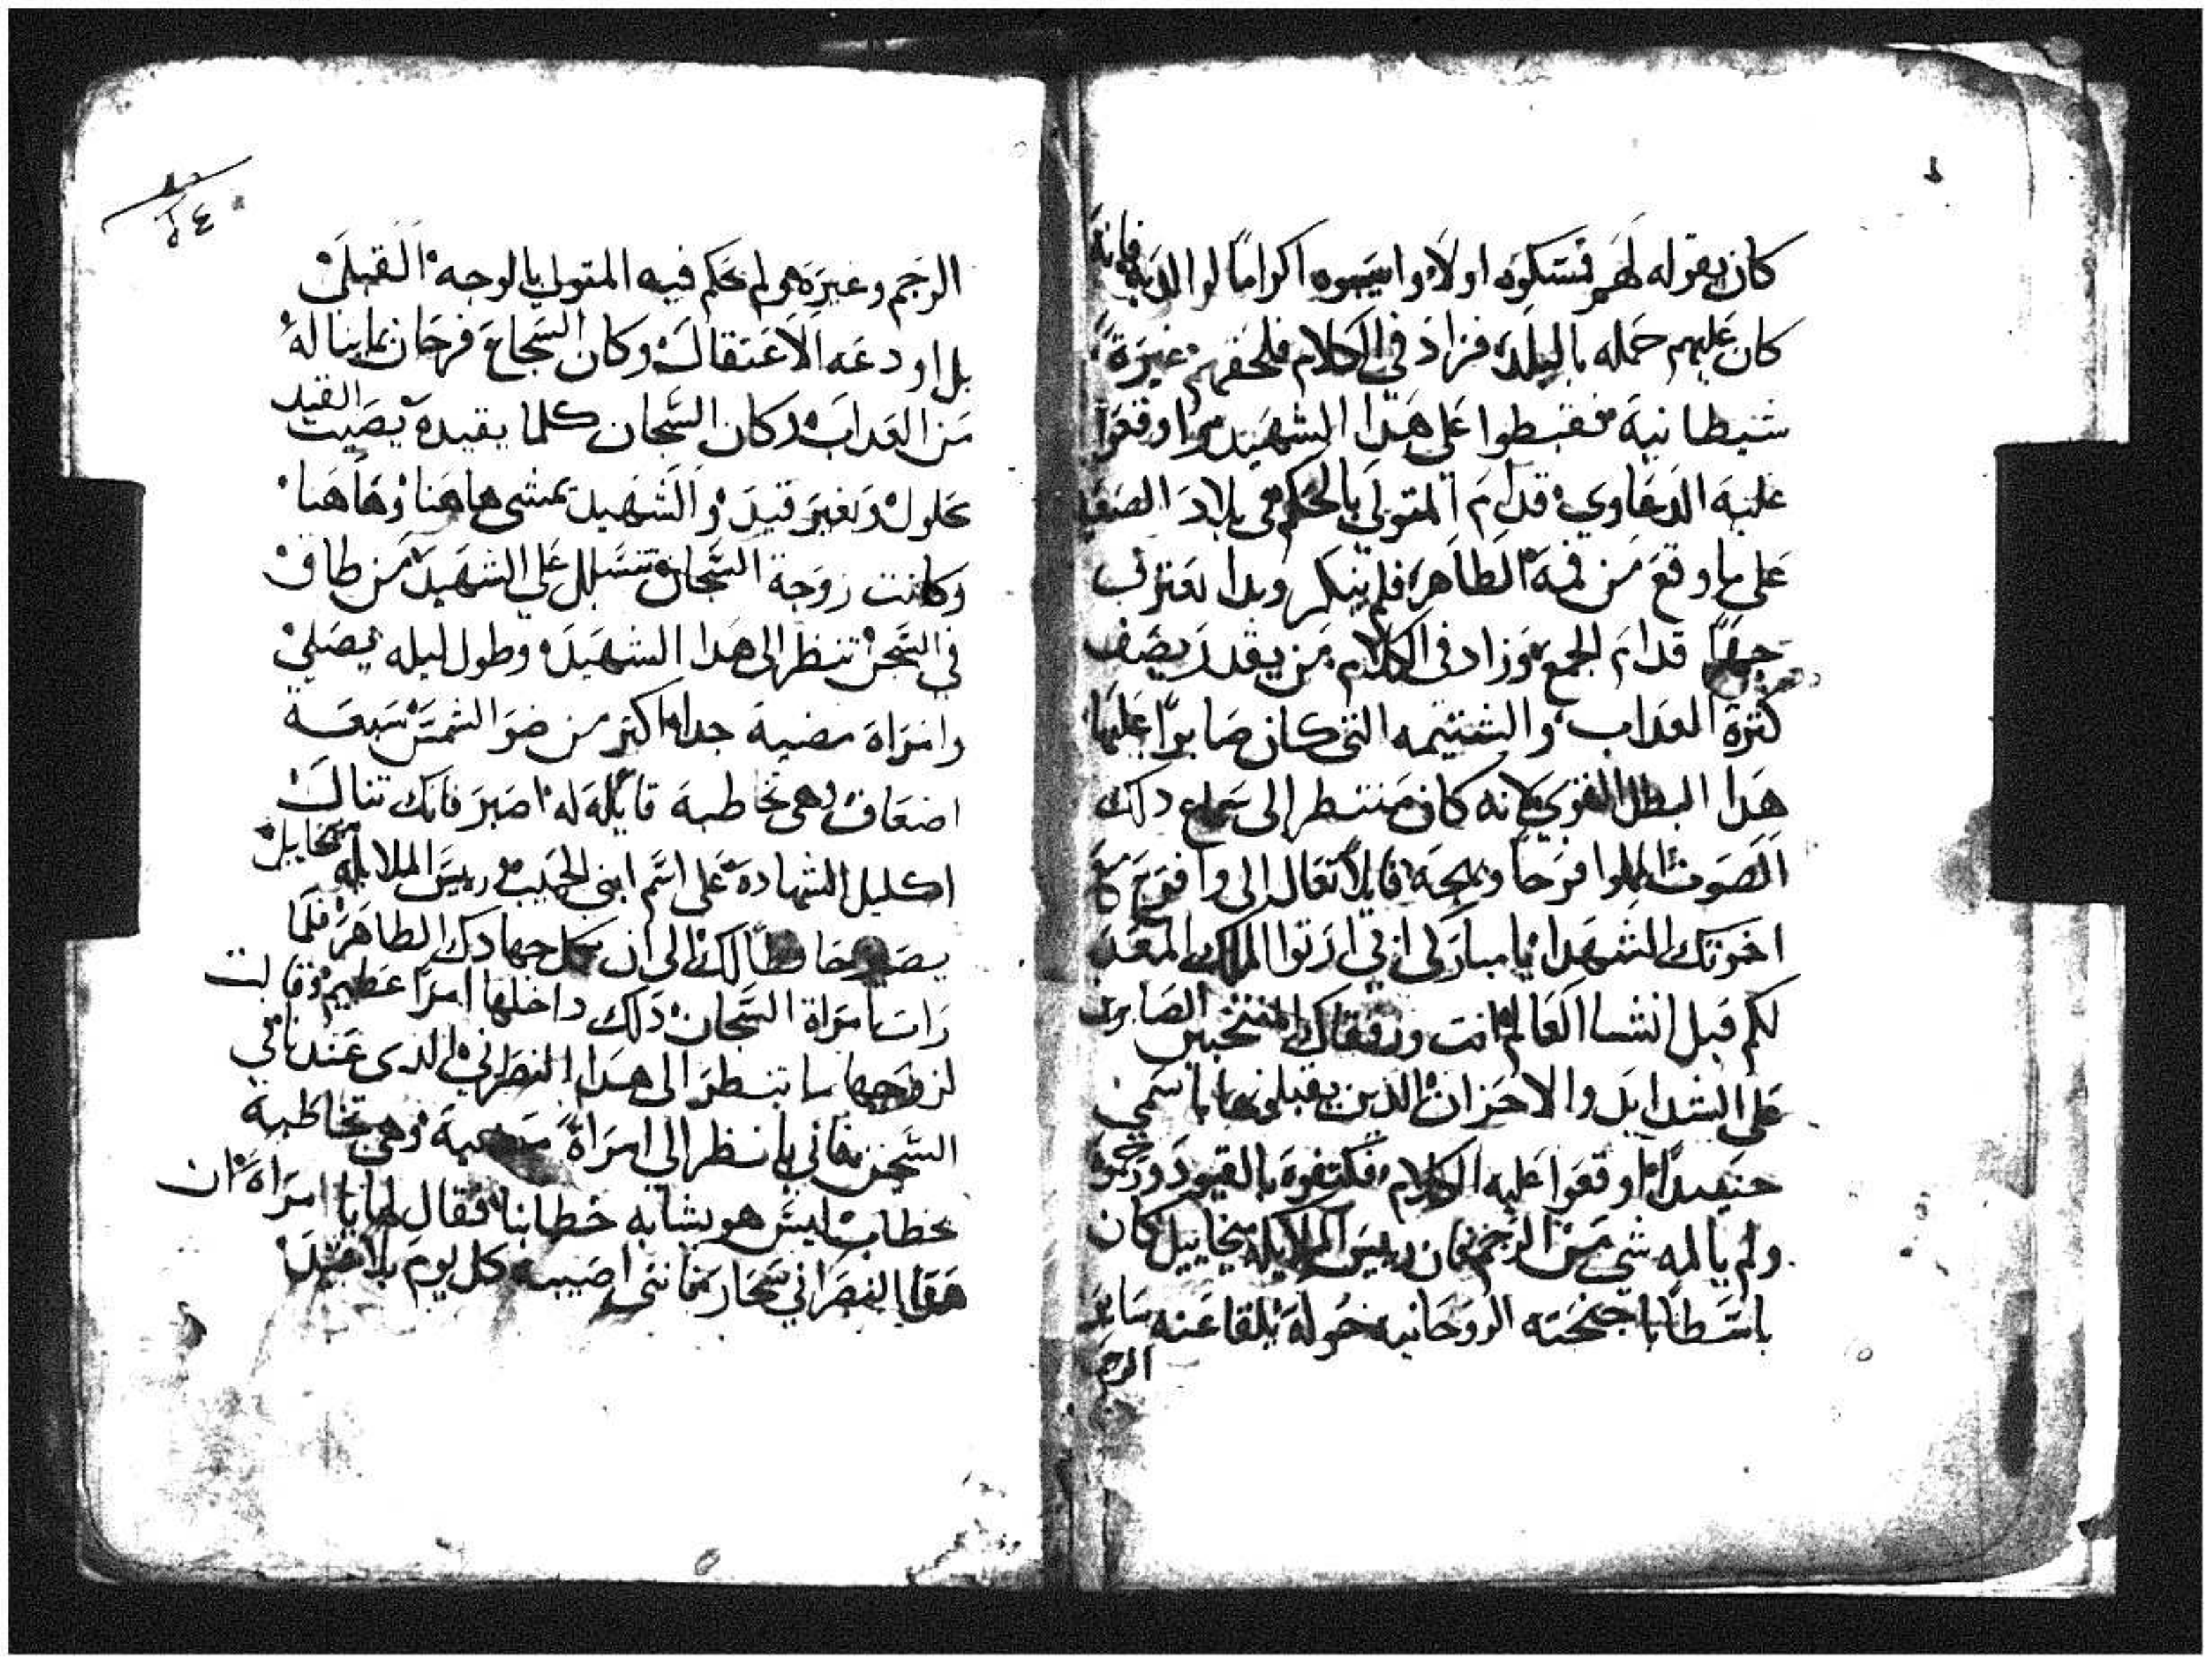 كان يقوله لهم فتتكوه اولا واسيبوه اكراما لوالديه فانه
كان عليهم حمله بالبلد، فزاد في الكلام فلحقهم غيرة
شيطانية فقبطوا على هدا الشهيد واوقفوا
عليه الدعاوي قدام المتولي بالحكم في بلاد الصعيد
على ما وقع من فمه الطاهر فلم ينكر وبدا يعترف
جهرا قدام الجمع وزاد في الكلام من يقدر يصف
كثرة العداب والشتيمه التي كان صابرا عليها
هدا البطل القوي لانه كان منتظر الى سماع دلك
الصوت المملوا فرحا وبهجة قايلا تعال الي وافرح مع
اخوتك الشهدا يا مباركى ابي ارتوا الملك المعد
لكم قبل انشا العالم انت ورفقاك المنتخبين الصابرين
على الشدايد والاحزان الدين يقبلونها باسمي
حينيدا اوقعوا عليه الكلام فكتفوه بالقيود ورجموه
ولم يالمه شي من الرجم فان رييس الملايكة ميخاييل كان
باسطا اجنحته الروحانيه حوله يلقا عنه ساير
الرجم

الرجم وغيره ولم يحكم فيه المتولي بالوجه القبلي
بل اودعه الاعتقال وكان الشجاع فرحان بما يناله
من العداب وكان السجان كلما يقيده يصيب القيد
محلول وبغير قيد والشهيد يمشي هاهنا وهاهنا
وكانت زوجة السجان تتسلل على الشهيد من طاق
في السجن تنظر الى هدا الشهيد وطول ليله يصلي
وامراة مضية جدا اكتر من ضو الشمس سبعة
اضعاف وهي تخاطبه قايلة له اصبر فانك تنال
اكليل الشهادة على اسم ابني الحبيب ورييس الملايكة ميخاييل
يصير حافظا لك الى ان تكمل جهادك الطاهر فلما
رات امراة السجان دلك داخلها امرا عظيم وقالت
لزوجها ما تنظر الى هدا النصراني الدي عندنا في
السجن فاني بانظر الي امراة مضيية وهي تخاطبه
بخطاب ليس هو يشابه خطابنا فقال لها يا امراة ان
هدا النصراني سحار فانني اصيبه كل يوم بلا قيد